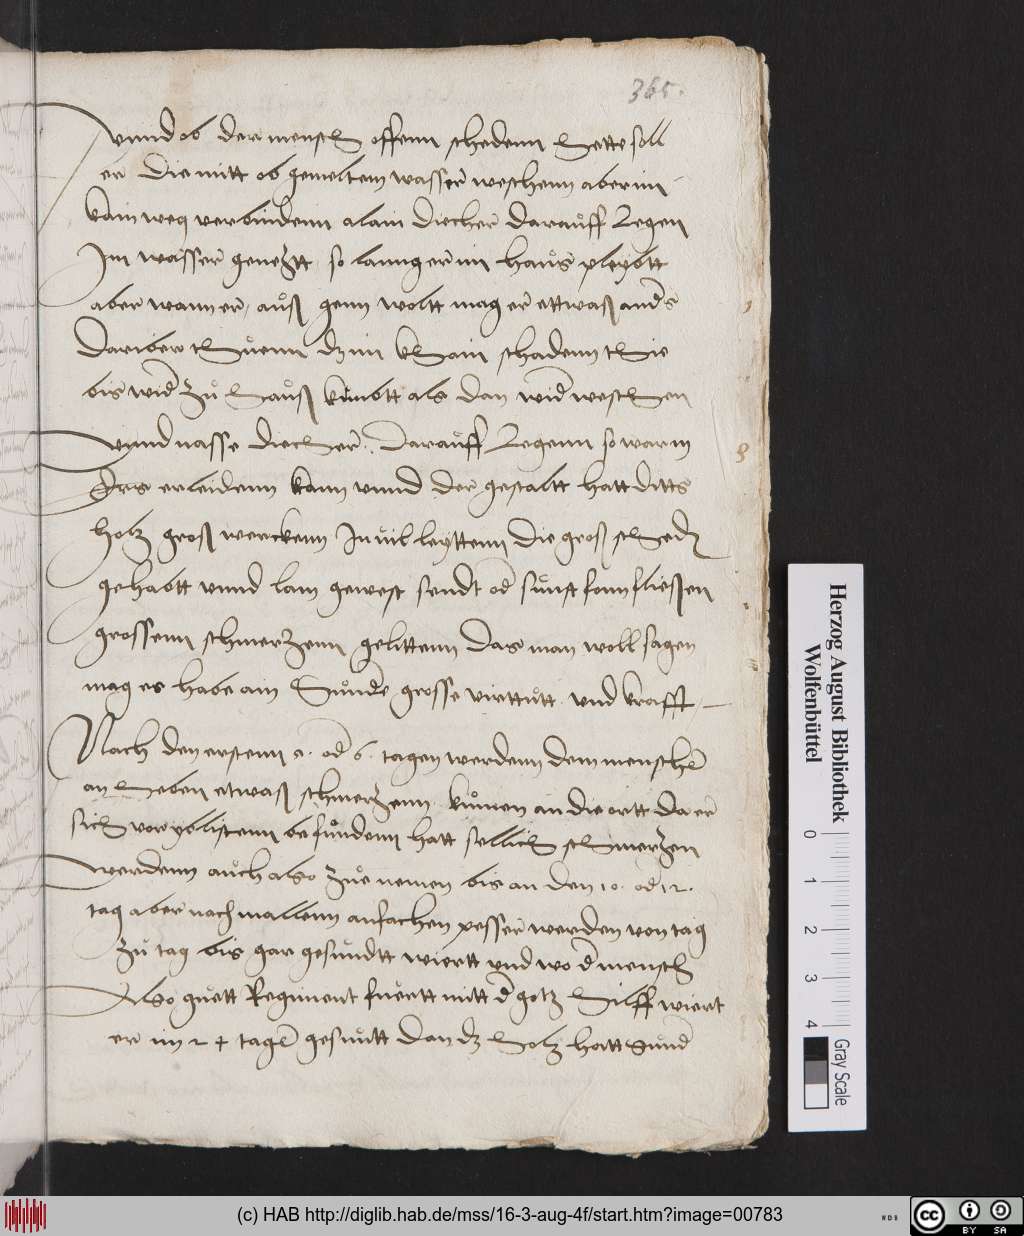 365.
vnnd ob der mensch offenn schedenn hette soll
er die mitt ob gemeltem wasser weschenn aber im
kain weg verbindenn alain diecher darauff Legen
Im wasser genezt so lanng er im haus pleybtt
aber wann er auß genn woltt mag er ettwaß anders
dariber thuenn dz im khain schadenn thie
bis wider zu hauß kumbtt als dan wider weschen
vnnd nasse diecher darauff Legenn so warm
Ers erleidenn kann vnnd der gestaltt hatt ditts
holz groß werckenn In vil leyttenn die groß schedn
gehabtt vnnd lam gewest sendt oder sunst fonn fliessen
grossenn schmerzenn gelittenn das man woll sagen
mag es habe ain grosse virttutt vnd krafft
Nach den erstenn oder 6. tagen werdenn dem menschen
an heben etwaß schmerzenn kumen an die ortt da er
sich vor yblistenn befundenn hatt sollich schmerzen
werdenn auch also zue nemen bis an den 10. oder 12.
tag aber nach mallenn anfachen pesser werden von tag
zu tag bis gar gesundtt wiertt vnd wo der mensch
Also guett Regiment fuertt mitt der gotz hilff wiert
er im 24 tagen gesuntt dan dz holz hatt
Herzog August Bibliothek
Wolfenbüttel
0 1 2 3 4
Gray Scale
(c) HAB http://diglib.hab.de/mss/16-3-aug-4f/start.htm?image=00783
WDB
cc BY SA